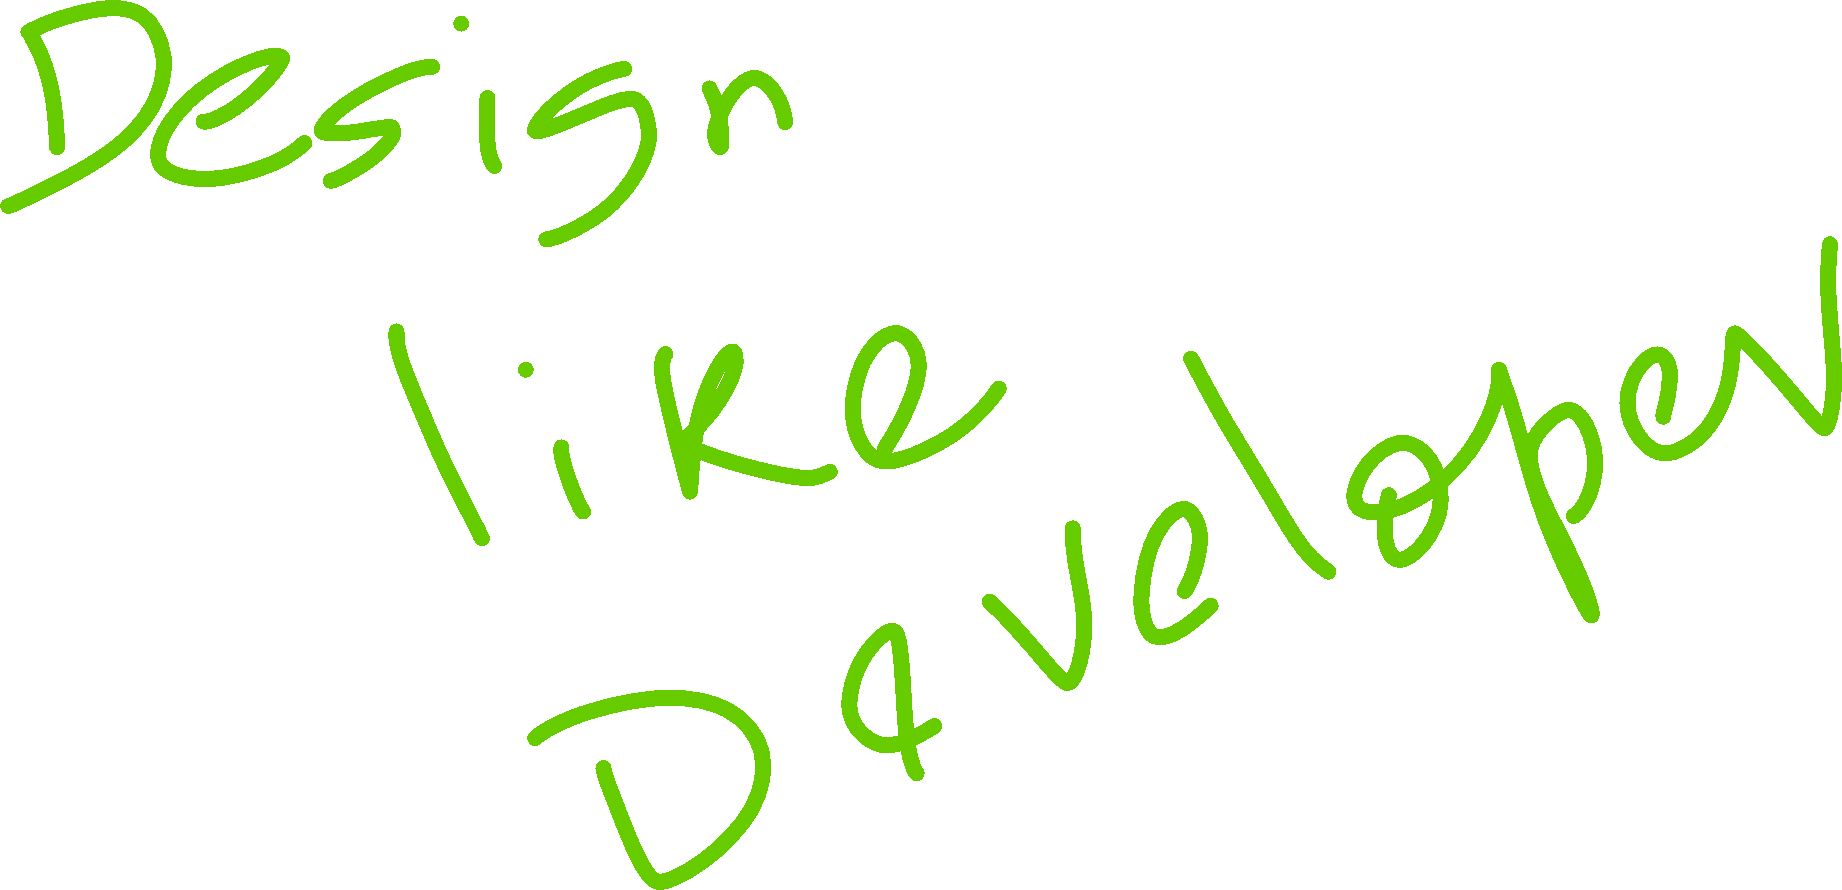 Design
like
Daveloper